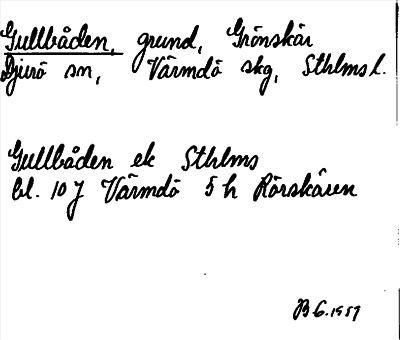 Gullbåden, grund, Grönskär
Djurö sn, Värmdö skg, Sthlms l.
Gullbåden ek Sthlms
bl. 10 J Värmdö 5 h Rörskären
B G. 1957